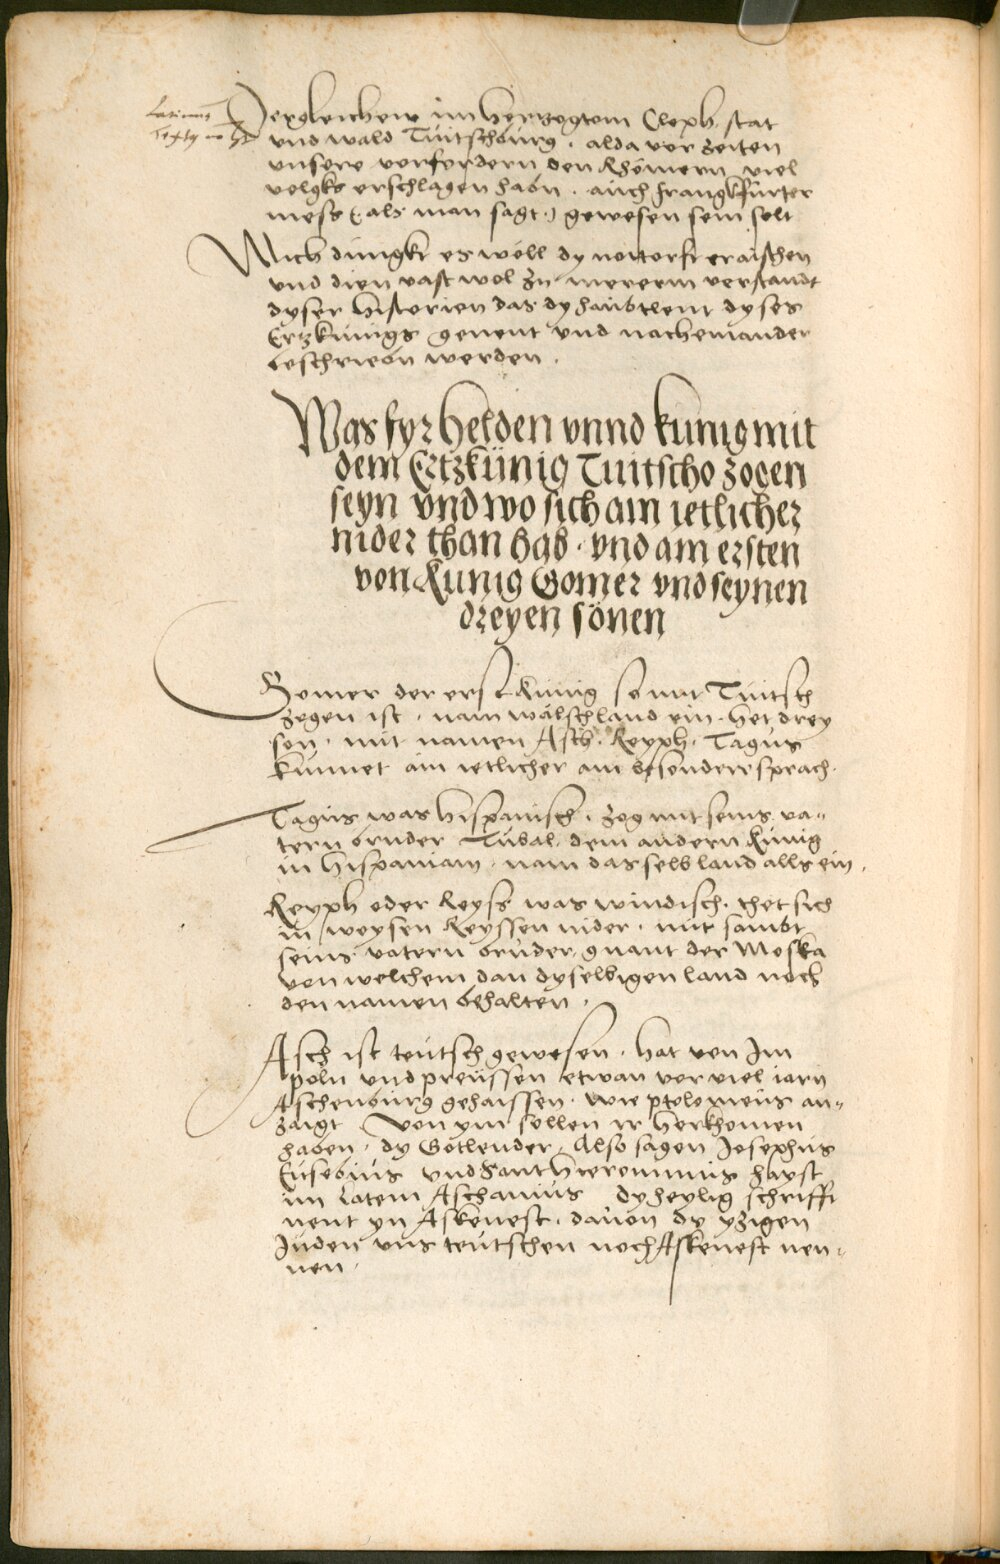 Dergleichen im Hertzogtom Cleph stat
vnd wald Tüitschbürg . alda vor zeiten
vnsere vorfordern den Rhömern viel
volgks erschlagen habn . aüch frangkfürter
mess (als man sagt) gewesen sein solt
Mich düngkt es wöll dy notorft eraischen
vnd dien vast wol zu mererm verstandt
dyser historien das dy haübtleut dyses
Ertzkünigs genent vnd nacheinander
beschriebn werden .
Was fyr helden vnnd künig mit
dem Ertzkünig Tuitscho zogen
seyn vnd wo sich ain ietlicher
nider than hab . vnd am ersten
von Künig Gomer vnd seynen
dreyen sönen
Gomer der erst Künig so mit Tüitsch
zogen ist . nam wälschland ein . het drey
sön . mit namen Asch . Reyph . Tagüs
künnet ain ietlicher ain besonder sprach .
Tagüs was hispanisch . zog mit seins va=
tern brüder Tübal dem andern Künig
in Hispaniam . nam dasselb land alls ein .
Reyph oder Reyss was windisch . thet sich
in weysen Reyssen nider . mit sambt
seins vatern brüder gnant der Moska
von welchem dan dyselbigen land noch
den namen behalten .
Asch ist teütsch gewesen . hat von Im
poln vnd preüssen etwan vor viel iarn
Aschenbürg gehaissen . wie ptolomeüs an=
zaigt Von ym sollen ir herkhomen
haben . dy Gotlender . Also sagen Josephüs
Eüsebiüs vnd Sant Hieronimüs hayst
im Latein Aschaniüs dy heylig schrifft
nent yn Askenest . dauon dy yzigen
Jüden vns teütschen noch Askenest nen=
nen .